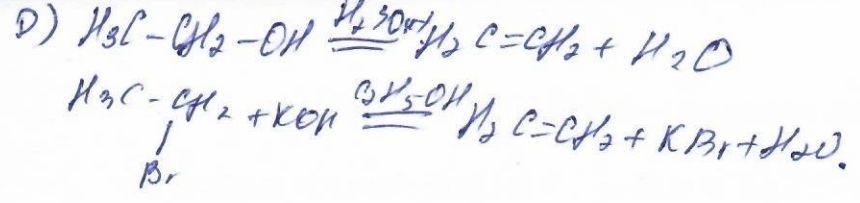 D) H₃C–CH₂–OH =(H₂SO₄)= H₂C=CH₂ + H₂O
H₃C–CH₂ + KOH =(C₂H₅–OH)= H₂C=CH₂ + KBr + H₂O.
Br